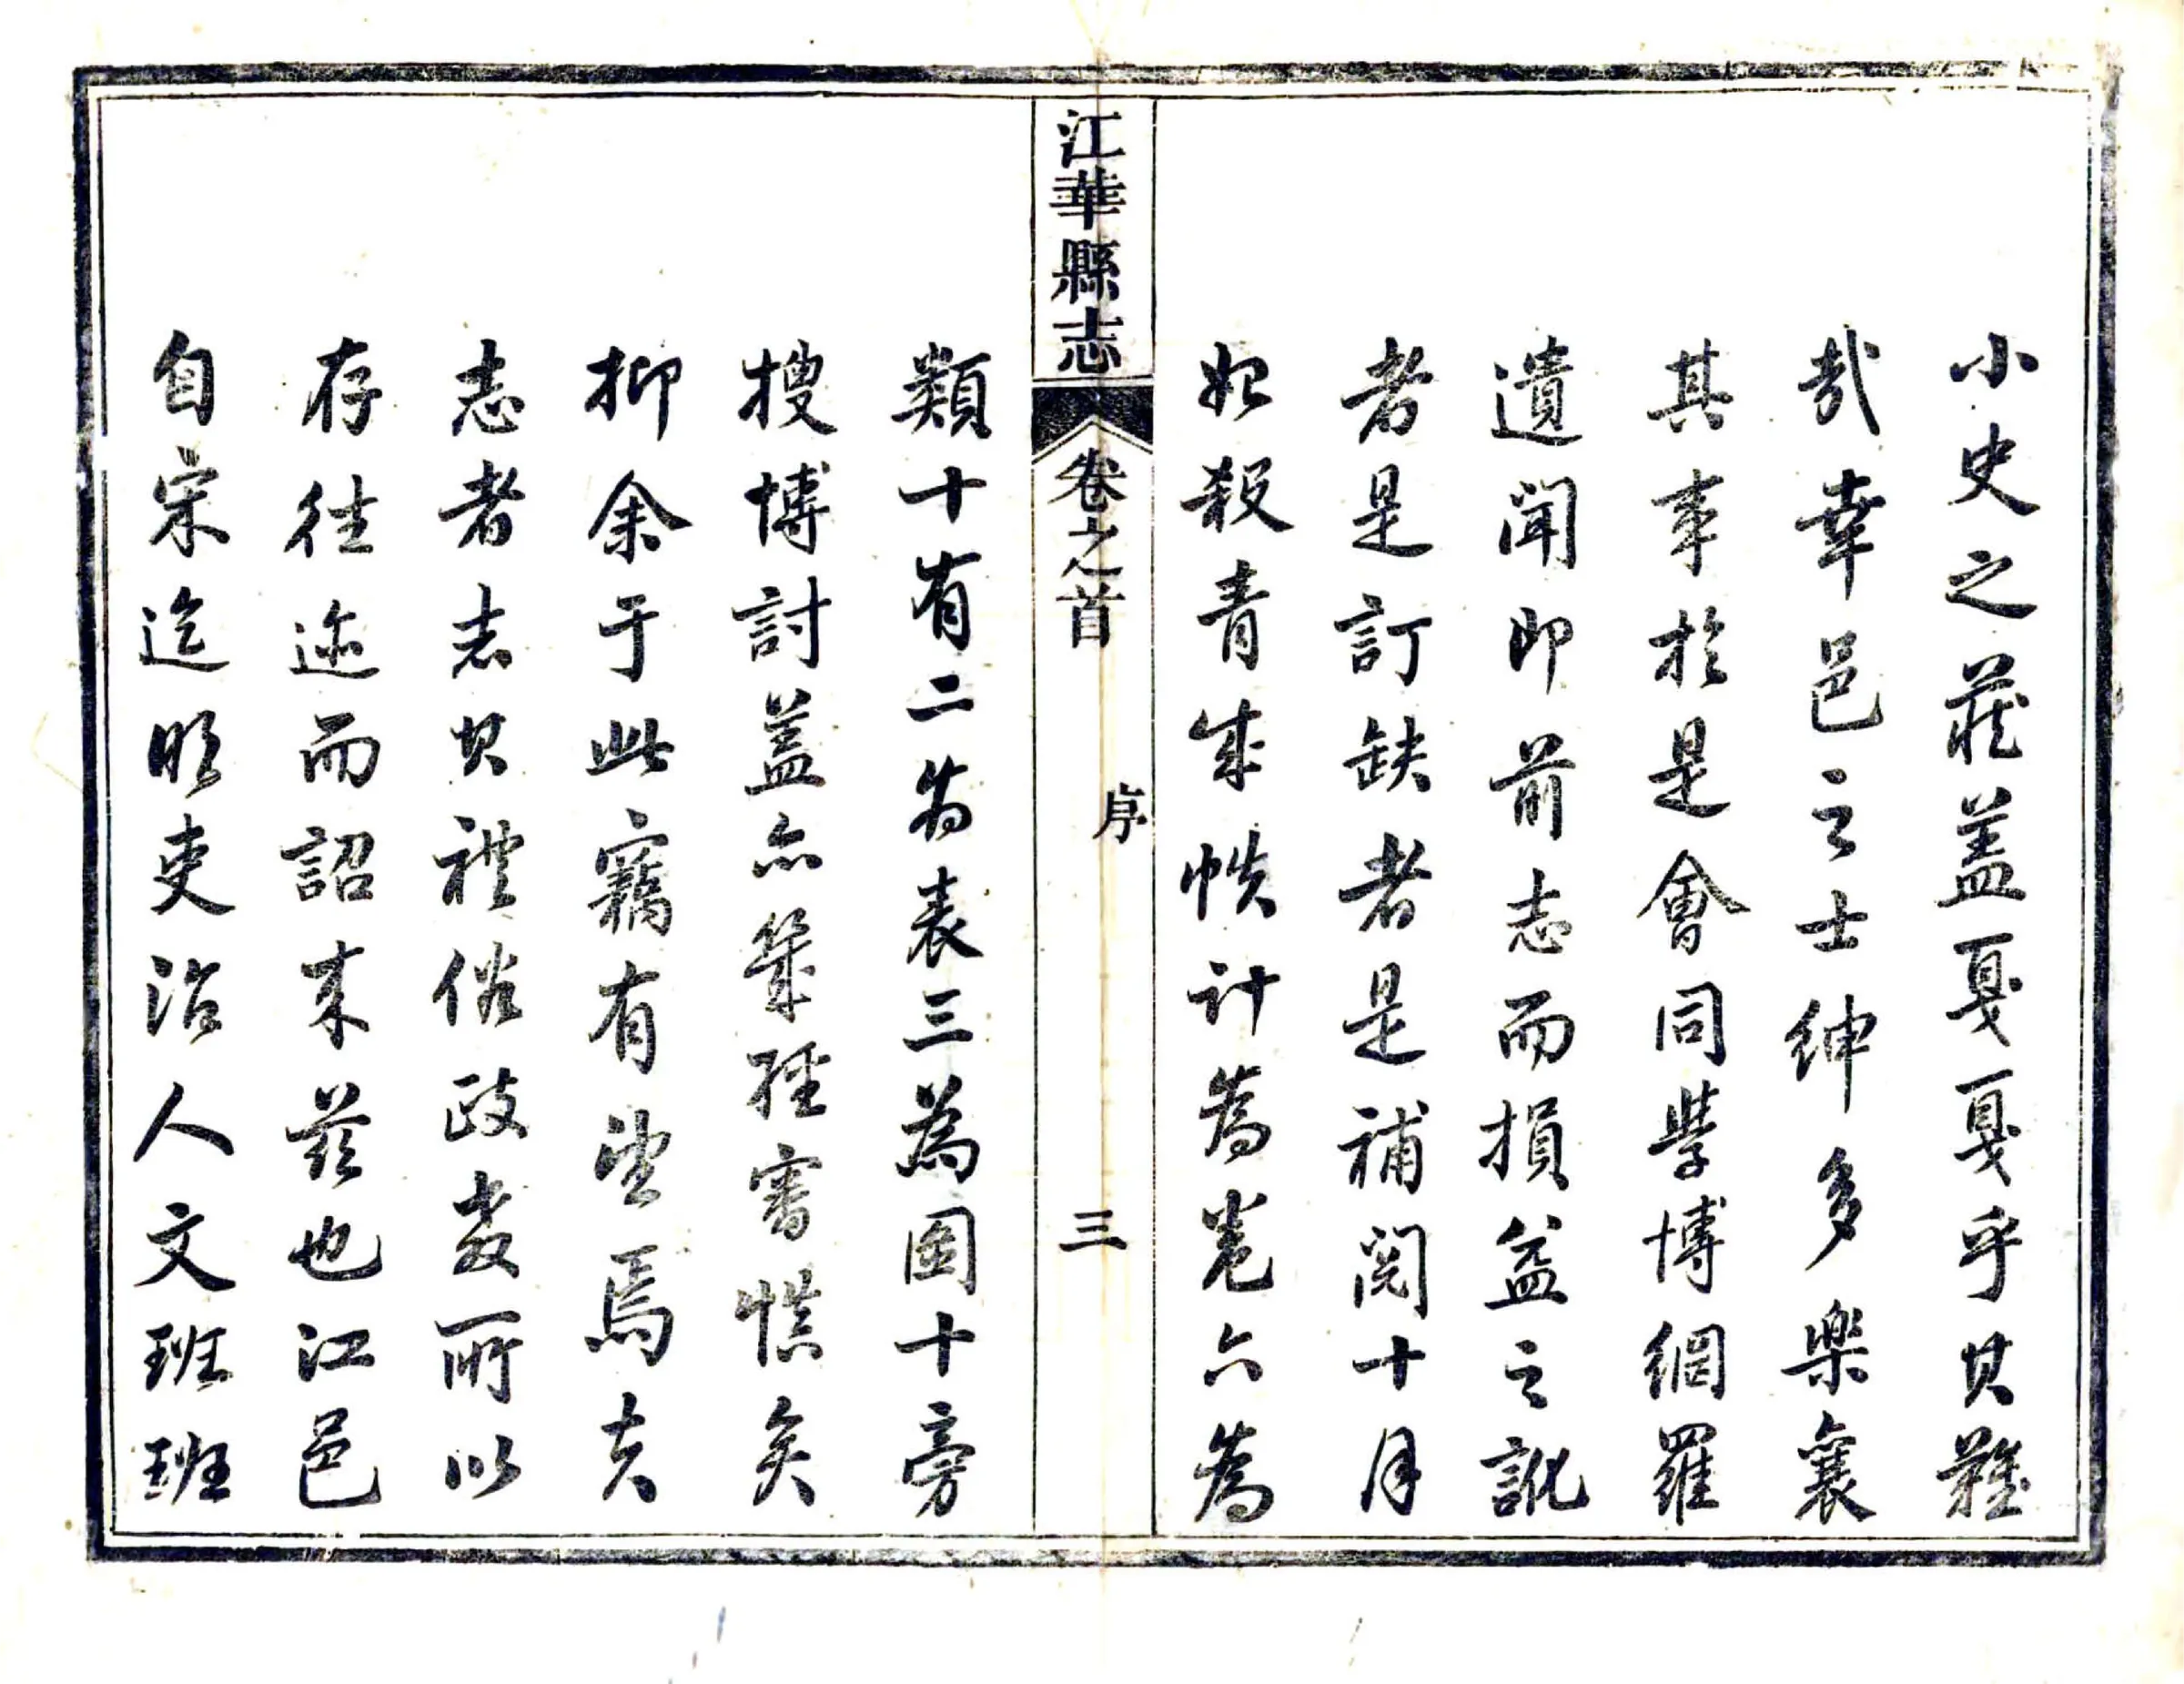 小史之蕆蓋戛戛乎其難
哉幸邑之士紳多樂襄
其事於是會同學博網羅
遺聞即前志而損益之訛
者是訂缺者是補閱十月
始殺青成帙計為卷六為
江華縣志
卷之首
序
三
類十有二為表三為圖十旁
搜博討蓋亦幾經審慎矣
抑余于此竊有望焉夫
志者志其禮俗政教所以
存往迹而詔來茲也江邑
自宋迄明吏治人文班班